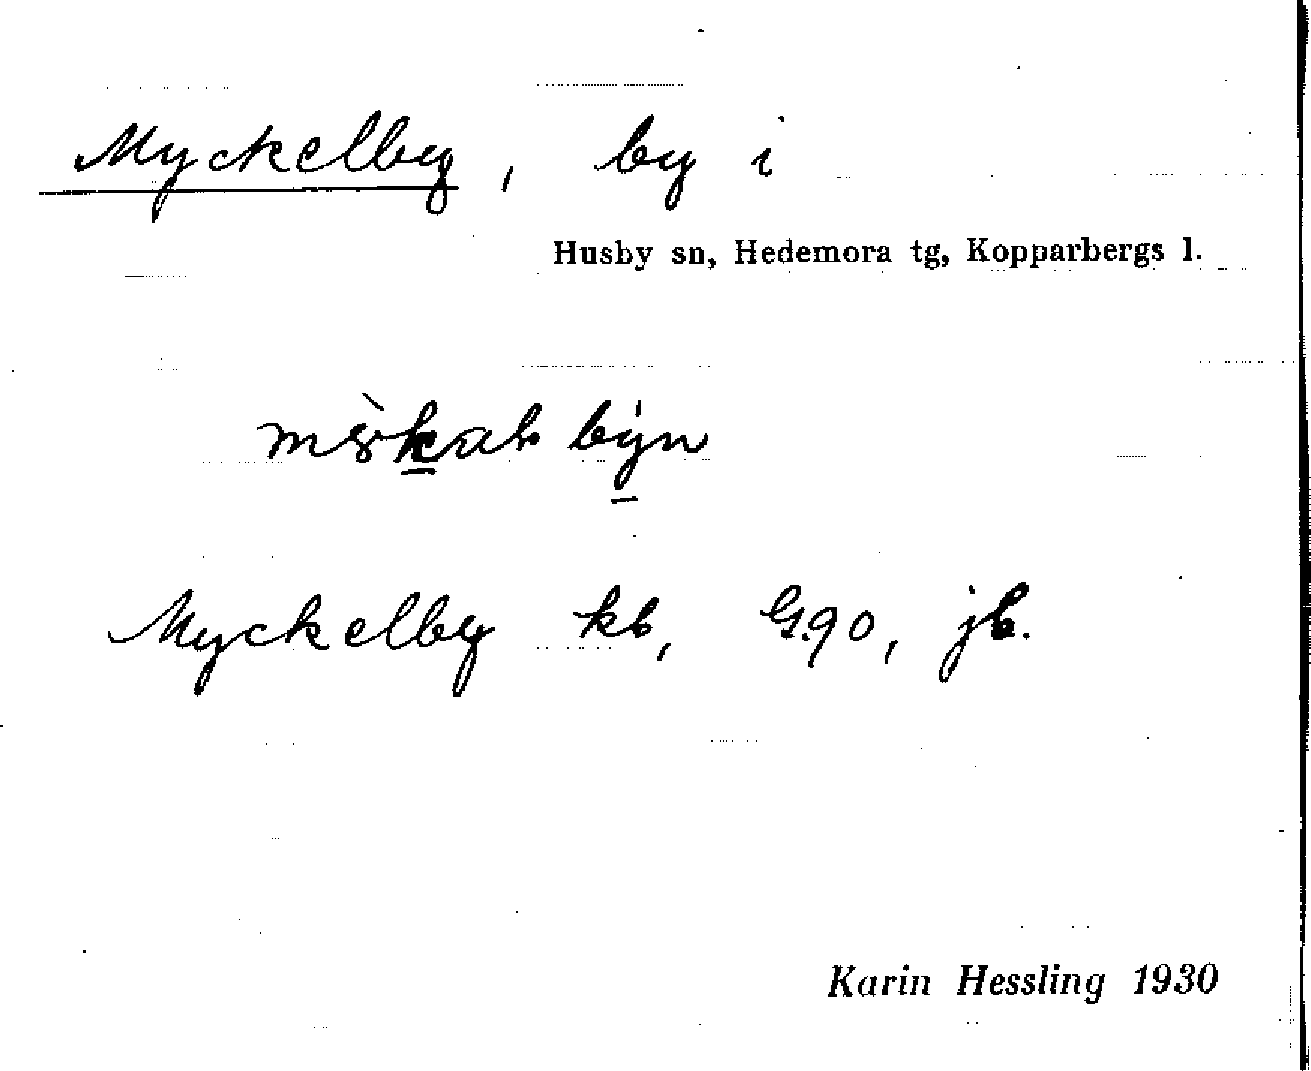 Myckelby, by i
Husby sn, Hedemora tg, Kopparbergs l.
býn
Myckelby kb, G.90, jb.
Karin Hessling 1930